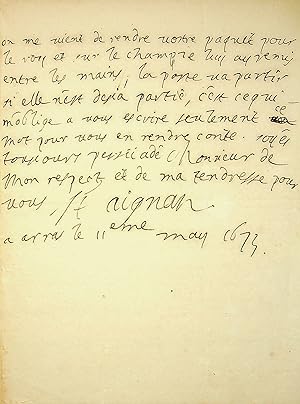 on me vient de rendre vostre paquté pour
le roy et sur le champ je luy ay remis
entre les mains, la poste va partir
si elle n'est desja partie, c'est ce qui
m'oblige a vous escrire seulement ce
mot pour vous en rendre conte. soyés
tousjours persuadé Monsieur de
mon respect et de ma tendresse pour
vous, St aignan
a arras le 11eme may 1673.